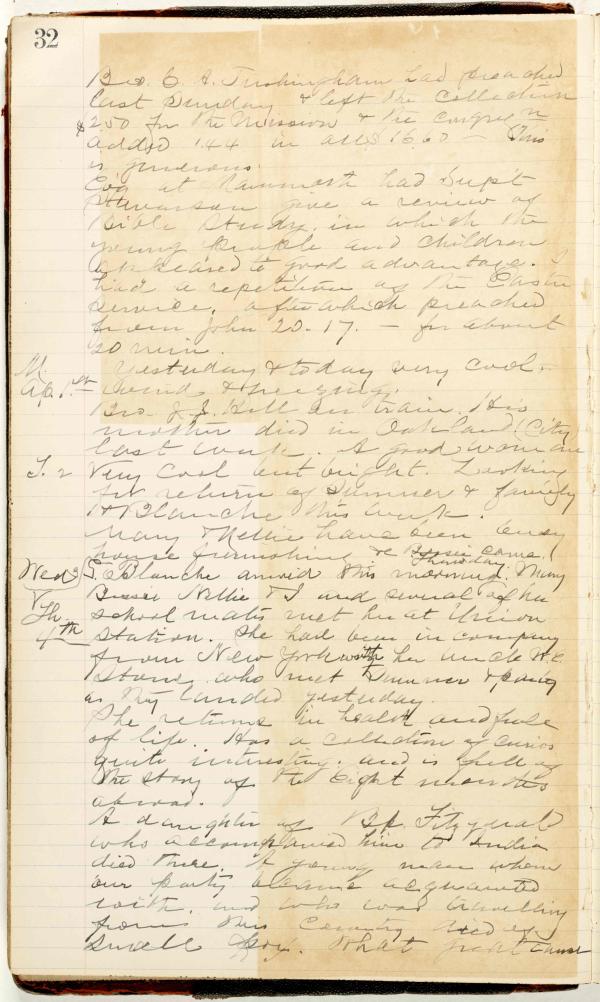 32
Bro. C. A. Tushingham had preached
last Sunday & left the collection
$2.50 for the Mission & the congre'n
added 144 in all $16.60 — This
is generous.
Eve at Mammoth had Sup't
Stevenson give a review of
Bible Study in which the
young people and children
appeared to good advantage. I
had a repetition of the Easter
service, after which preached
from John 20-17. — for about
20 min.
M. Yesterday & today very cool.
Ap. 1st wind & freezing.
Bro. J. J. Hill on train. His
mother died in Oakland (City)
last week. A good woman
T. 2 Very cool but bright. Looking
for return of Sumner & family
& Blanche this week.
Mary & Nellie have been busy
house furnishing & Bessie came
Thursday
Wed 3 Blanche arrived this morning. Mary
Bessie Nellie & I and several of her
Th. school mates met her at Union
4th Station. She had been in company
from New York with her uncle W.C.
Stone, who met Sumner & party
as they landed yesterday.
She returns in health and full
of life. Has a collection of curios
quite interesting, and is full of
the story of the eight months
abroad.
A daughter of Bp. Fitzgerald
who accompanied him to India
died there. A young man whom
our party became acquainted
with, and who was travelling
from this Country died of
small pox. What great cause